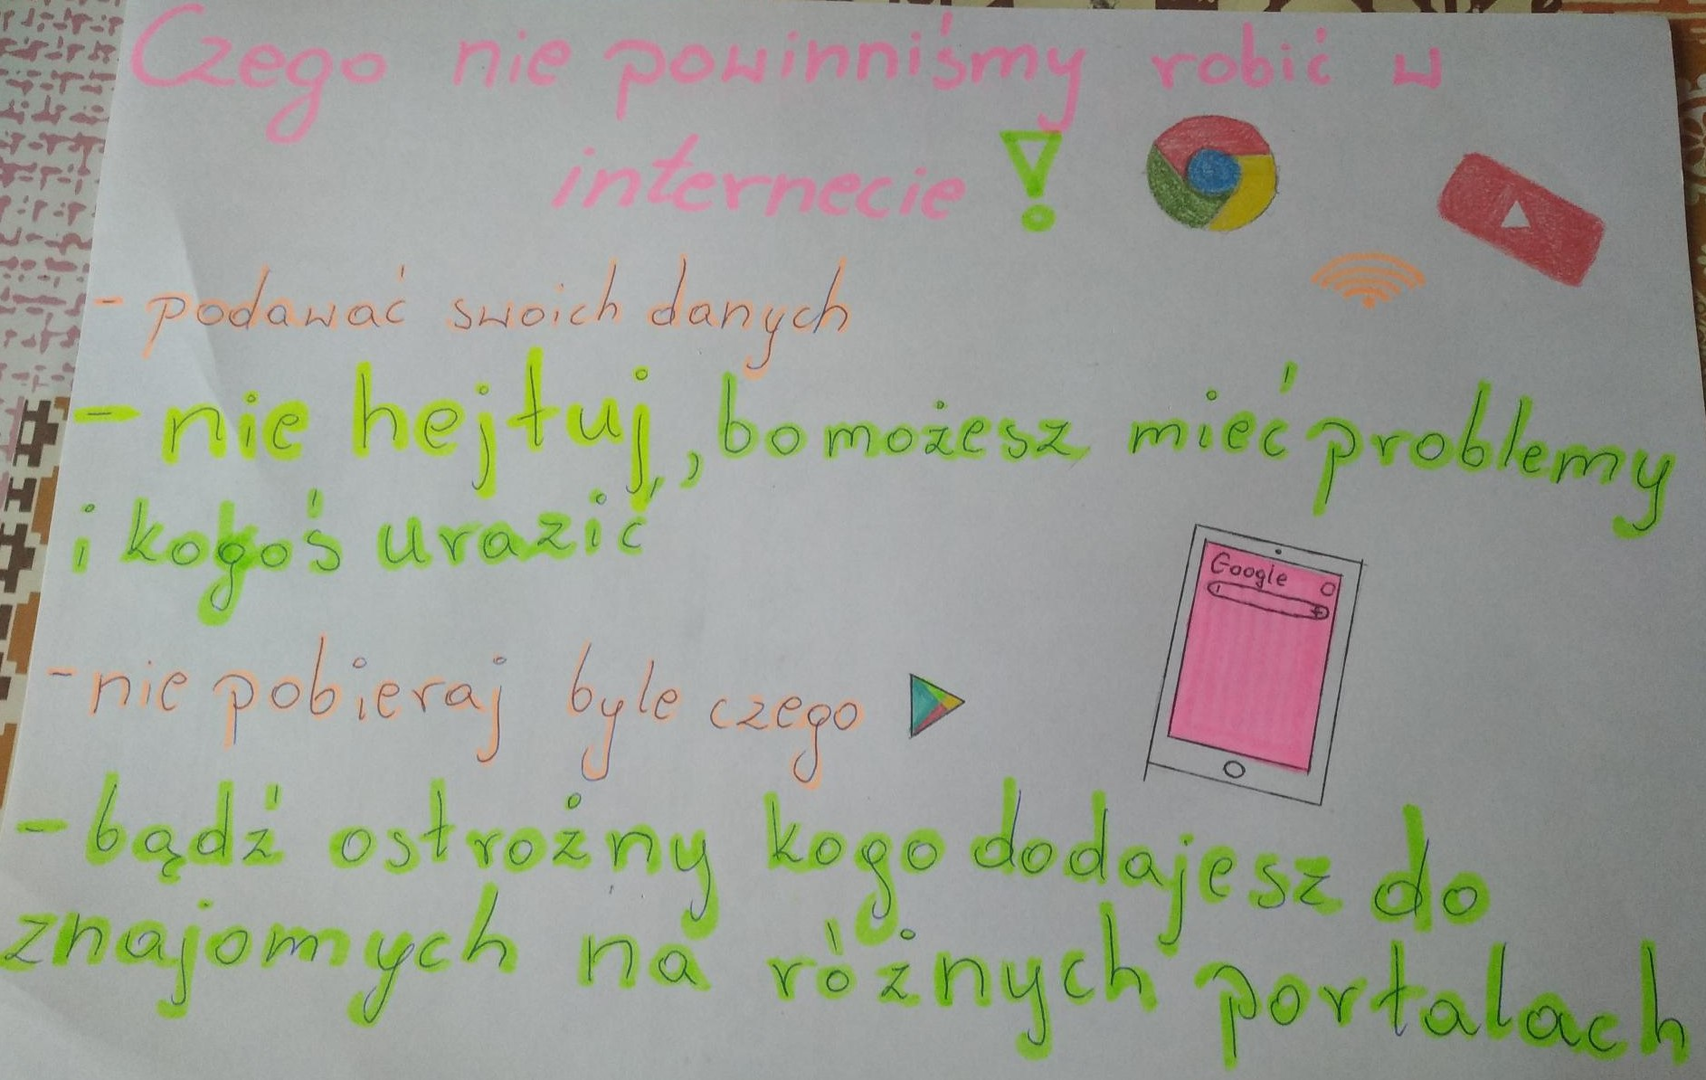 Czego nie powinniśmy robić w
internecie!
- podawać swoich danych
- nie hejtuj, bo możesz mieć problemy
i kogoś urazić
Google
- nie pobieraj byle czego
- bądź ostrożny kogo dodajesz do
znajomych na różnych portalach